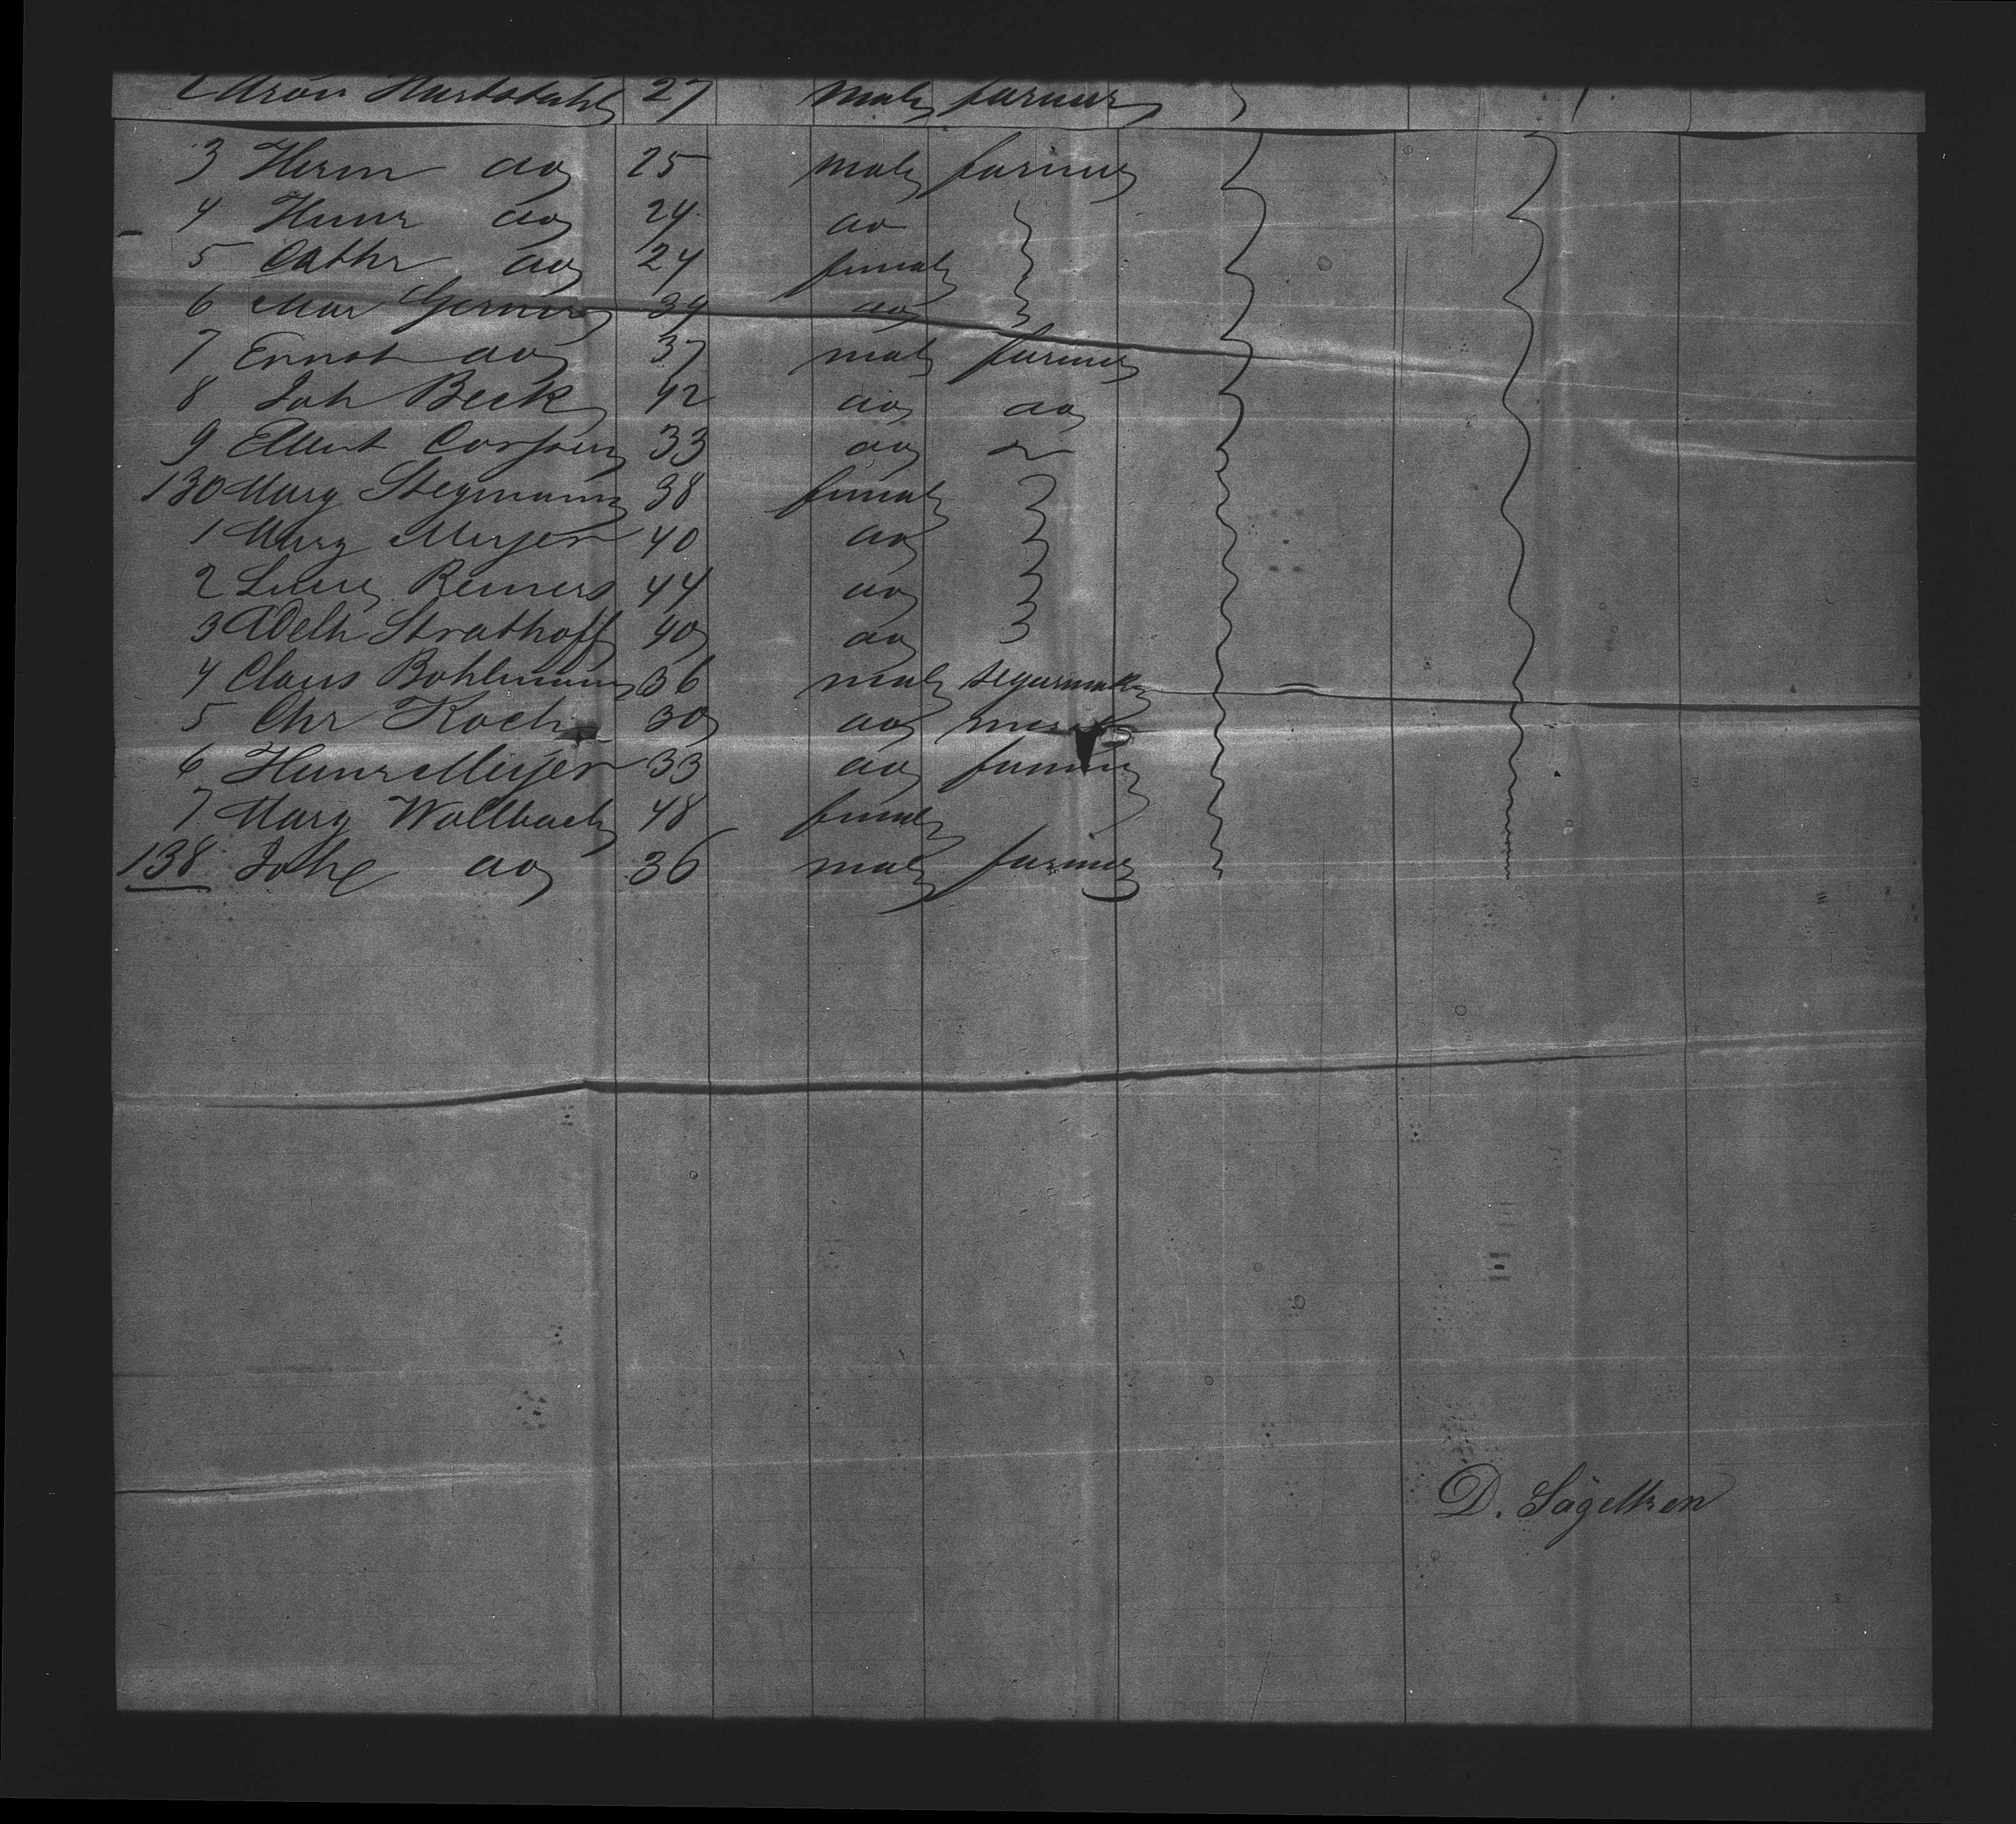 2 Aron 27 male farmer
3 Herm do 25 male farmer
4 Heinr do 24 do
5 Cathr do 24 female
6 Mar Gerner 39 do
7 Ernst do 37 male farmer
8 Joh Beck 42 do do
9 33 do
130 Marg Stegmann 38 female
1 Marg Meyer 40 do
2 Reiners 44 do
3 Adelh Strathoff 40 do
4 Claus Bohlmann 36 male segarmaker
5 Chr Koch 30 do
6 Heinr Meyer 33 do farmer
7 Marg Wallbach 48 female
138 Johe do 36 male farmer
D. Sägelken